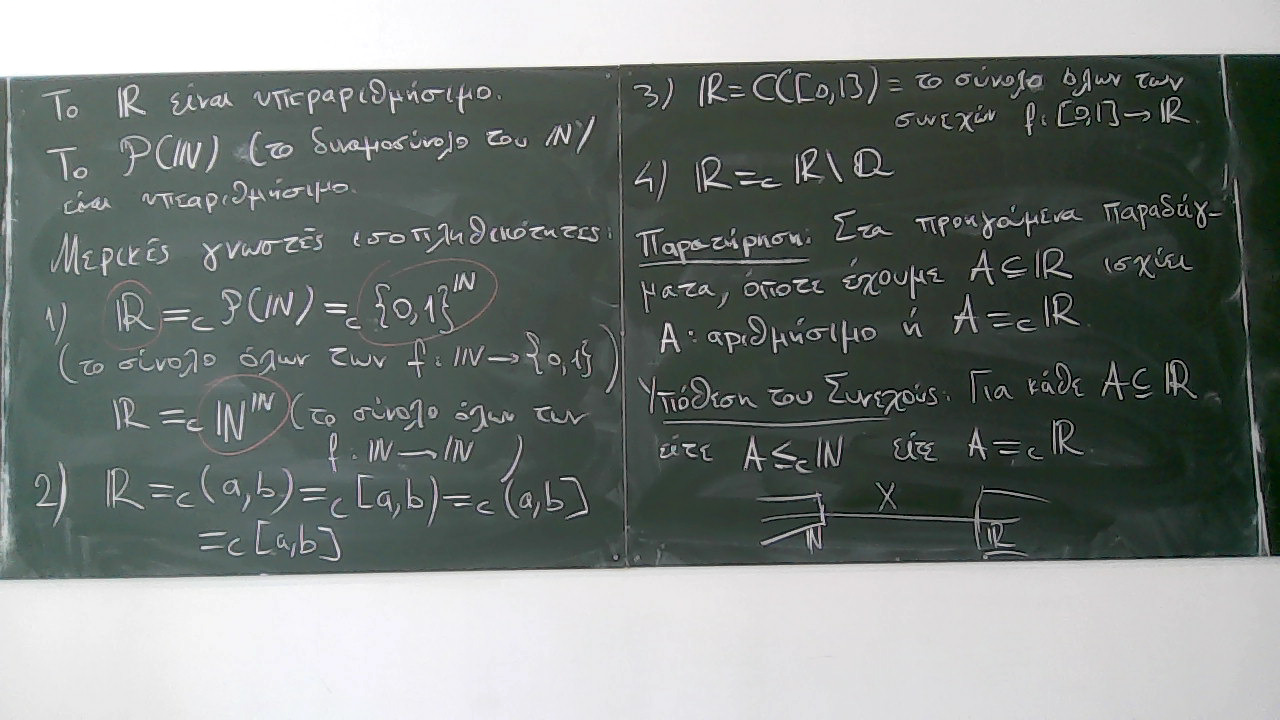 Το ℝ είναι υπεραριθμήσιμο.
Το 𝒫(ℕ) (το δυναμοσύνολο του ℕ)
είναι υπεαριθμήσιμο.
Μερικές γνωστές ισοπληθικότητες:
1) ℝ =c 𝒫(ℕ) =c {0,1}^ℕ
(το σύνολο όλων των f: ℕ → {0,1})
ℝ =c ℕ^ℕ (το σύνολο όλων των
f: ℕ → ℕ)
2) ℝ =c (a,b) =c [a,b) =c (a,b]
=c [a,b]
3) ℝ = C([0,1]) = το σύνολο όλων των
συνεχών f: [0,1] → ℝ.
4) ℝ =c ℝ \ ℚ
Παρατήρηση: Στα προηγούμενα παραδείγ-
ματα, όποτε έχουμε A ⊆ ℝ ισχύει
A: αριθμήσιμο ή A =c ℝ.
Υπόθεση του Συνεχούς: Για κάθε A ⊆ ℝ
είτε A ≤c ℕ είτε A =c ℝ.
X
ℕ ℝ